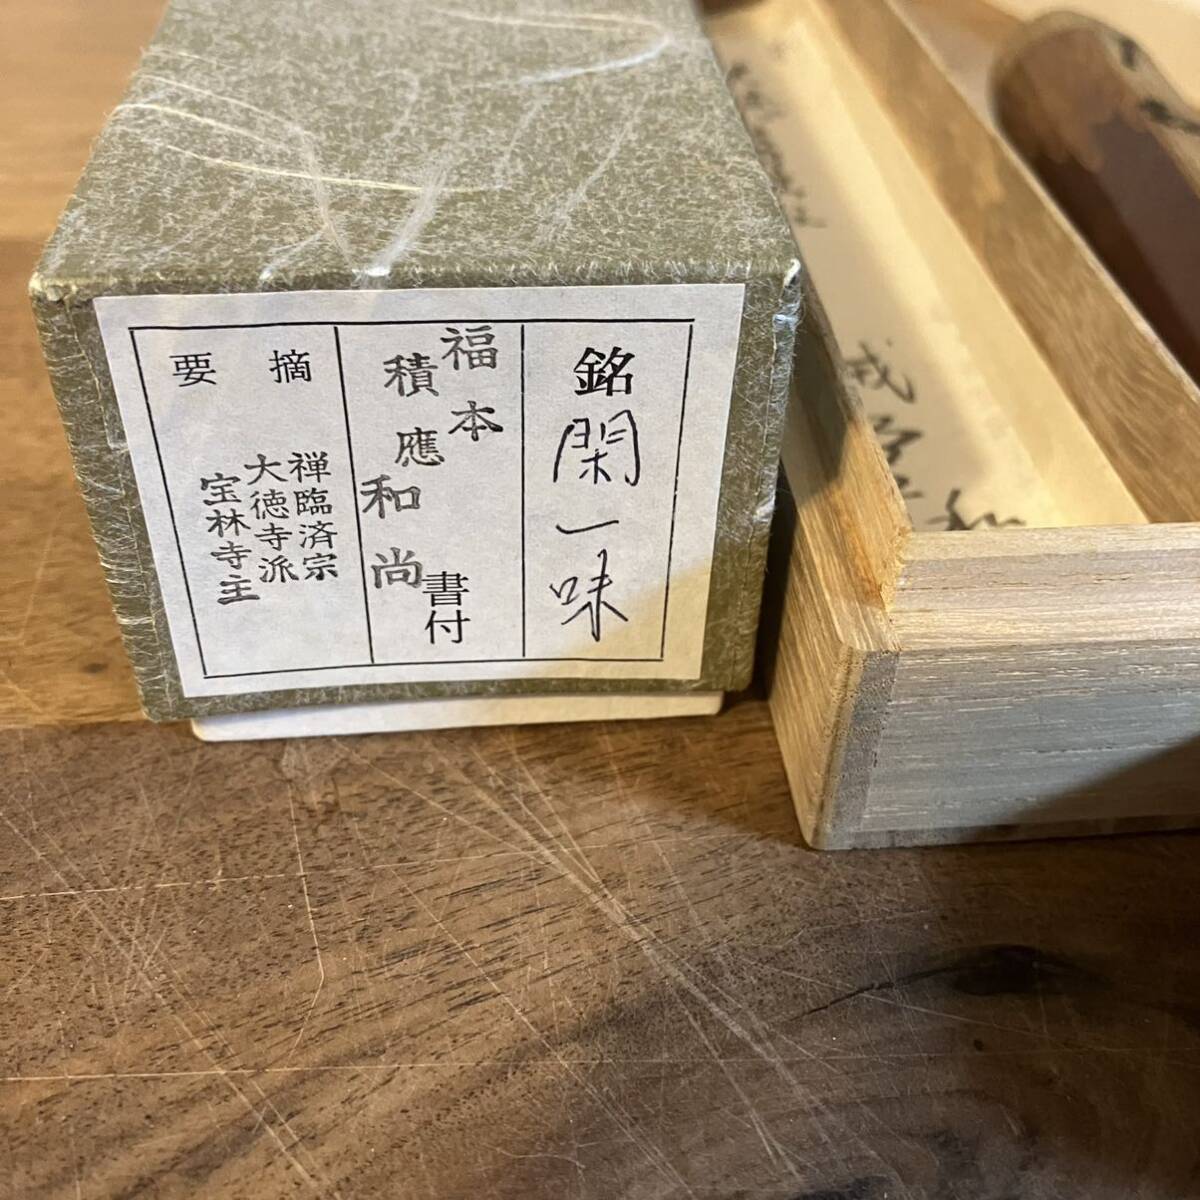 銘 閑一味
福本
積應和尚
書付
摘要
禅臨済宗
大徳寺派
宝林寺主